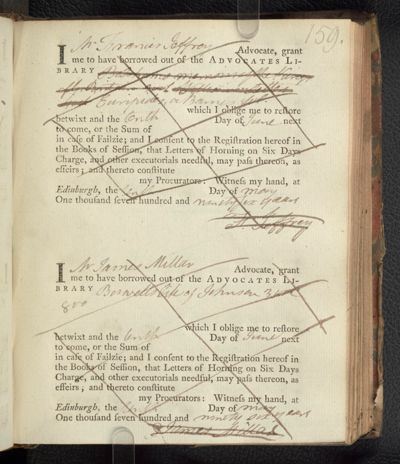 159.
I Mr Francis Jeffrey Advocate, grant
me to have borrowed out of the ADVOCATES LI-
BRARY
which I oblige me to reſtore
betwixt and the tenth Day of June next
to come, or the Sum of
in caſe of Failzie; and I conſent to the Regiſtration hereof in
the Books of Seſſion, that Letters of Horning on Six Days
Charge, and other executorials needful, may paſs thereon, as
effeirs; and thereto conſtitute
my Procurators: Witneſs my hand, at
Edinburgh, the Day of may
One thouſand ſeven hundred and ninety six years
F. Jeffrey
I Mr James Millar Advocate, grant
me to have borrowed out of the ADVOCATES LI-
BRARY Boswells life of Johnson
8vo
which I oblige me to reſtore
betwixt and the tenth Day of June next
to come, or the Sum of
in caſe of Failzie; and I conſent to the Regiſtration hereof in
the Books of Seſſion, that Letters of Horning on Six Days
Charge, and other executorials needful, may paſs thereon, as
effeirs; and thereto conſtitute
my Procurators: Witneſs my hand, at
Edinburgh, the Day of may
One thouſand ſeven hundred and ninety six years
James Millar